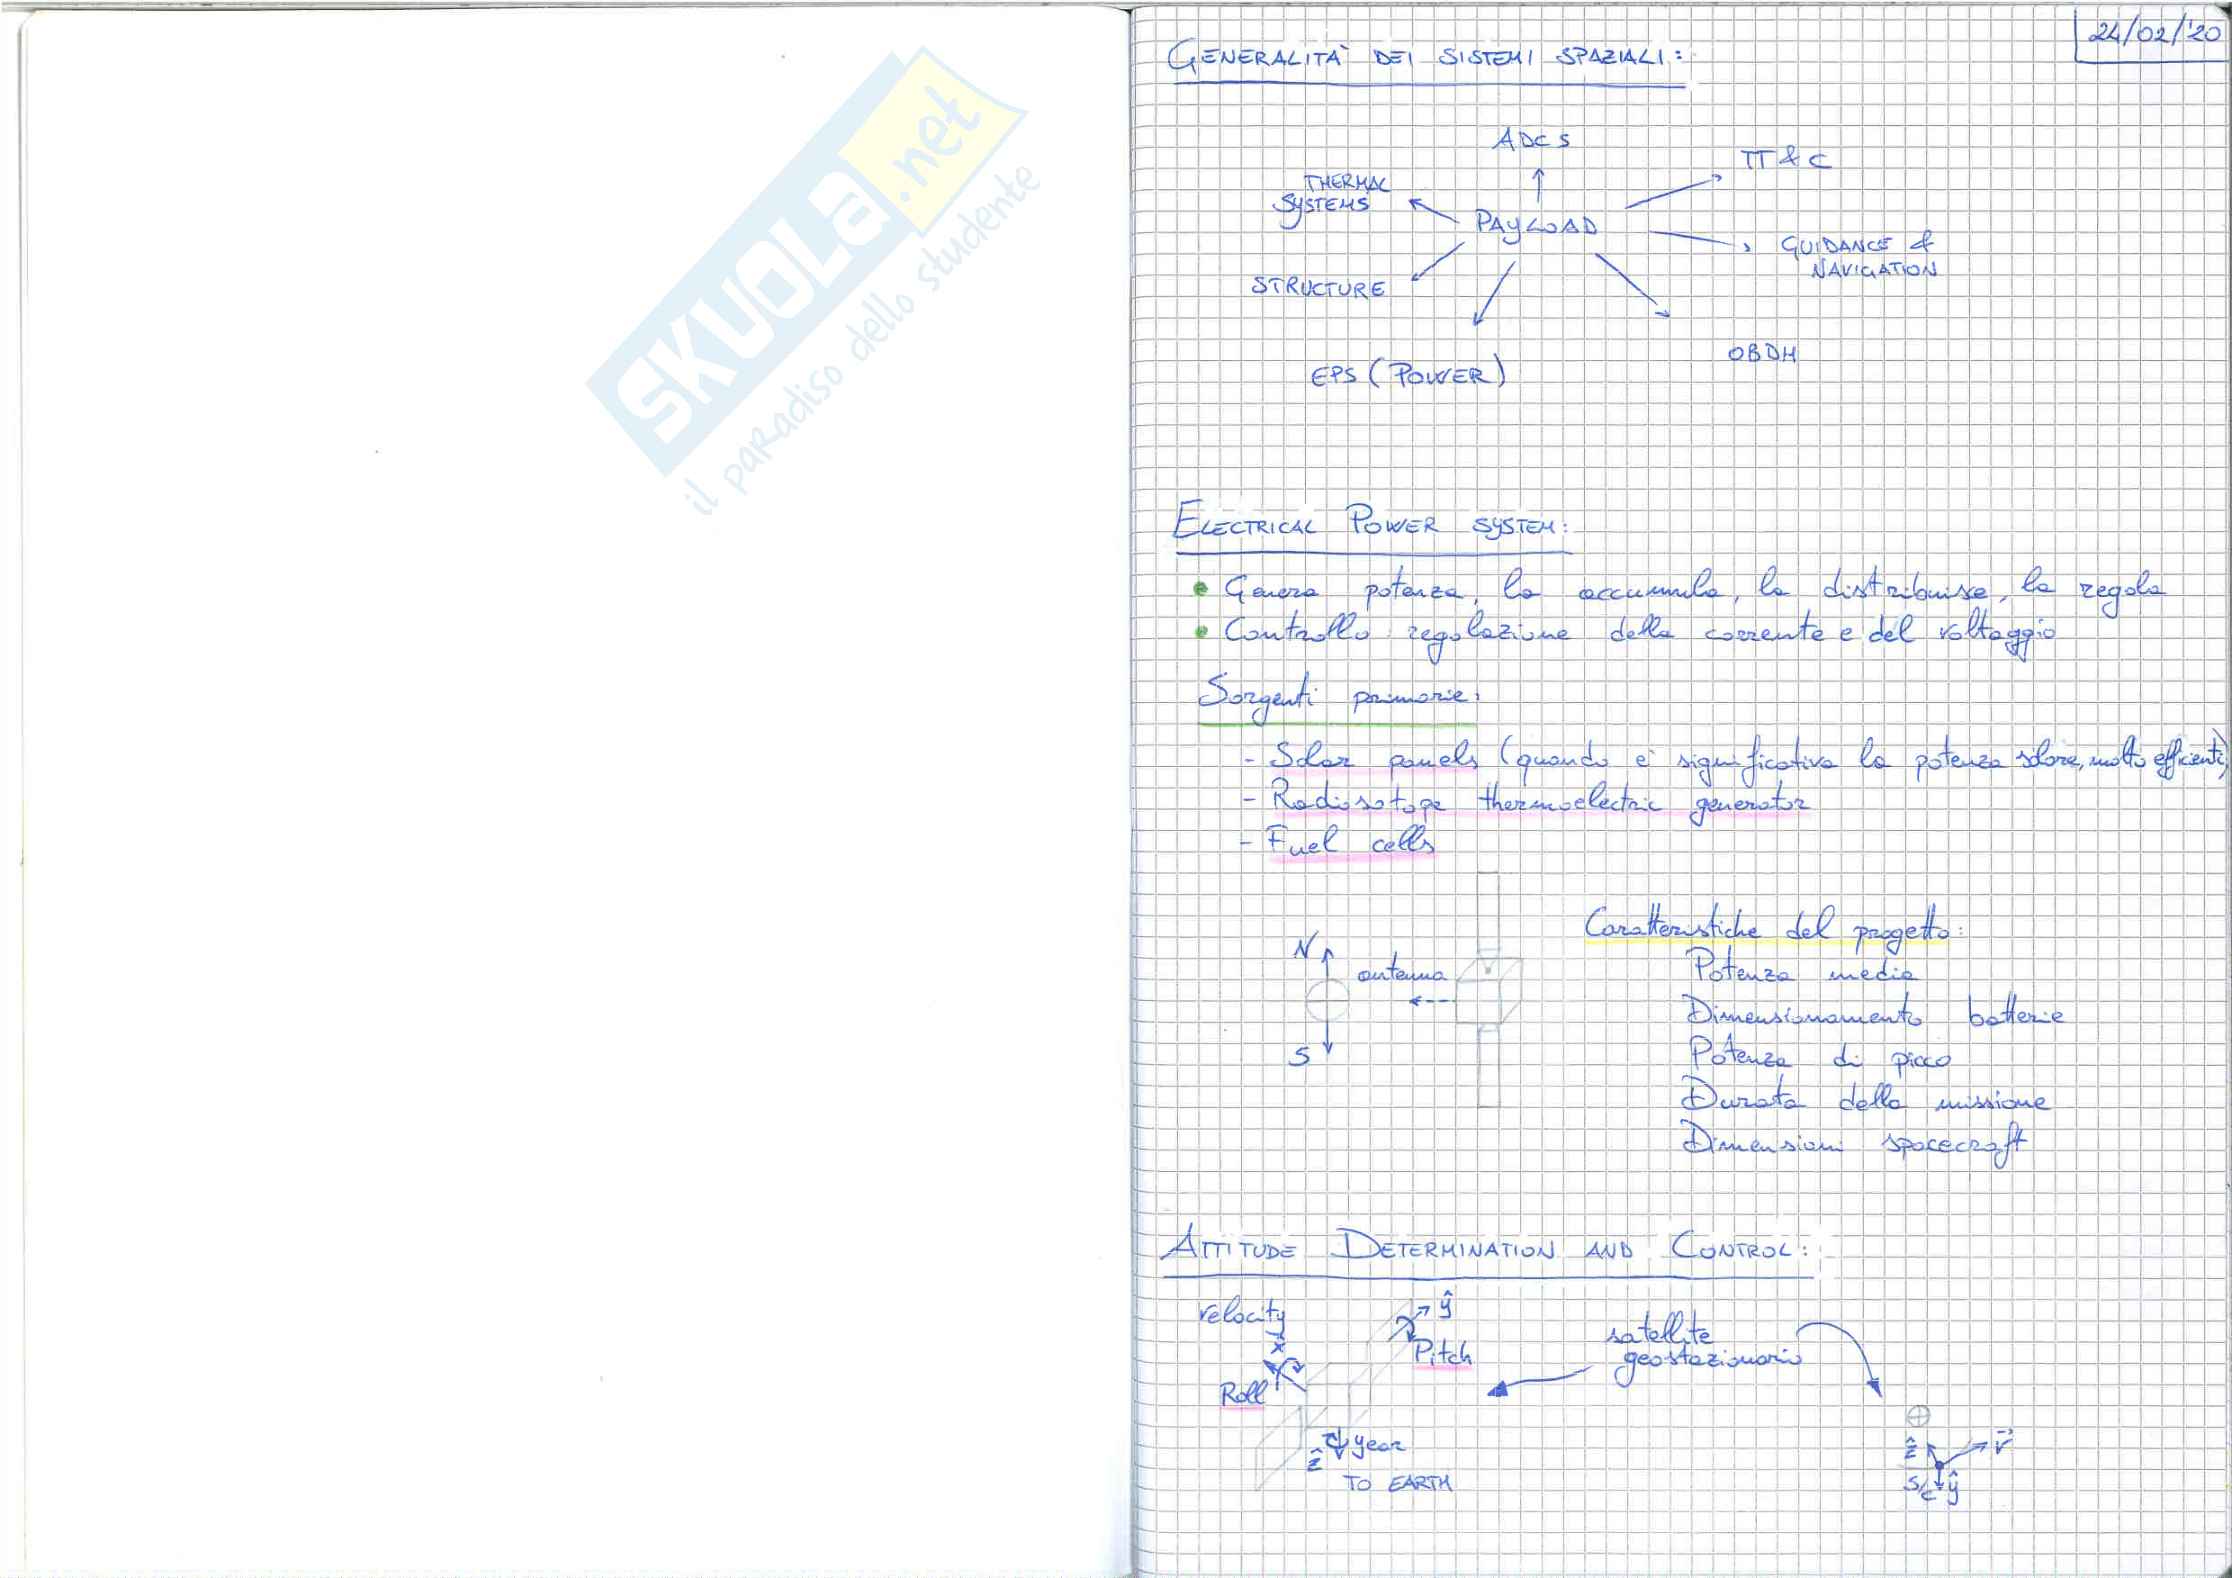 SKUOLA.net
il paradiso dello studente
24/02/'20
GENERALITÀ DEI SISTEMI SPAZIALI:
ADCS
TT & C
THERMAL
SYSTEMS
PAYLOAD
GUIDANCE &
NAVIGATION
STRUCTURE
OBDH
EPS (POWER)
ELECTRICAL POWER SYSTEM:
• Genera potenza, la accumula, la distribuisce, la regola
• Controllo: regolazione della corrente e del voltaggio
Sorgenti primarie:
- Solar panels (quando è significativa la potenza solare, molto efficienti)
- Radiosotope thermoelectric generator
- Fuel cells
Caratteristiche del progetto:
N
antenna
Potenza media
Dimensionamento batterie
S
Potenza di picco
Durata della missione
Dimensioni spacecraft
ATTITUDE DETERMINATION AND CONTROL:
velocity
x̂
ŷ
Pitch
satellite
geostazionario
Roll
ẑ
year
TO EARTH
ẑ
v⃗
S/C
ŷ